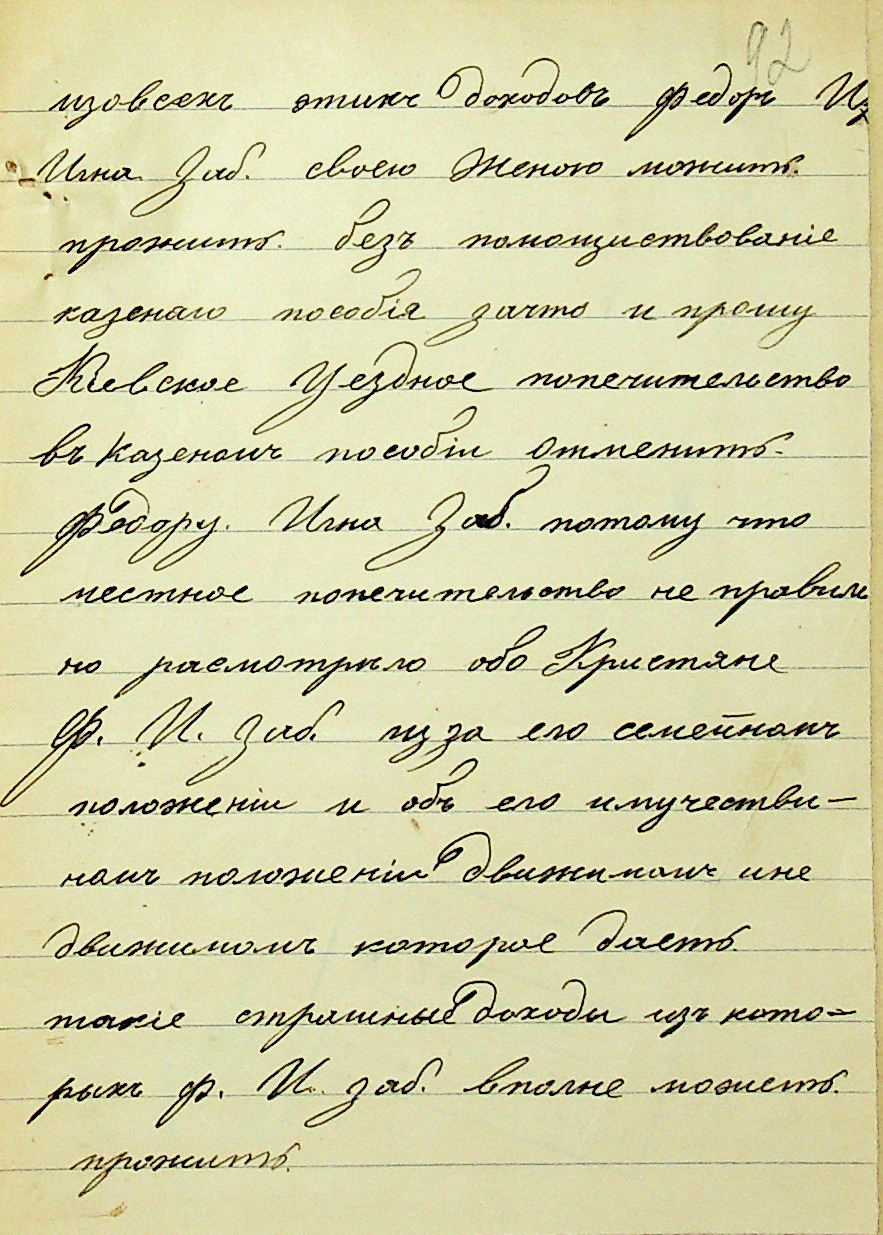 92
изовсехъ этихъ доходовъ Федоръ
Игна. Заб. своею женою можитъ.
прожить. безъ помощиствованіе
казенаго пособія зачто и прошу
Кіевское Уездное попечительство
въ казеномъ пособіи отменить.
Федору. Игна Заб. потому что
местное попечительство не правиль
но расмотрѣло обо Кристяне
Ф. И. Заб. изза его семейномъ
положеніи и объ его имучестви-
номъ положеніи движимомъ ине
движимомъ которое даетъ.
такіе страшные доходы изъ кото-
рыхъ Ф. И. Заб. вполне можетъ.
прожить.